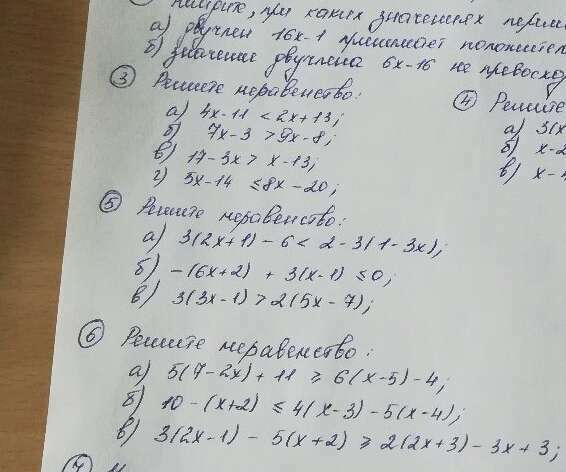 при каких значениях
а) двучлен 16x-1 принимает
б) значение двучлена 6x-16 не
③ Решите неравенство:
а) 4x-11 < 2x+13;
б) 7x-3 > 9x-8;
в) 17-3x > x-13;
г) 5x-14 ≤ 8x-20;
④ Решите
а) 3(x
б) x-2
в) x-
⑤ Решите неравенство:
а) 3(2x+1) - 6 < 2-3(1-3x);
б) -(6x+2) + 3(x-1) ≤ 0;
в) 3(3x-1) > 2(5x-7);
⑥ Решите неравенство:
а) 5(7-2x) + 11 ≥ 6(x-5) - 4;
б) 10 - (x+2) ≤ 4(x-3) - 5(x-4);
в) 3(2x-1) - 5(x+2) ≥ 2(2x+3) - 3x + 3;
⑦